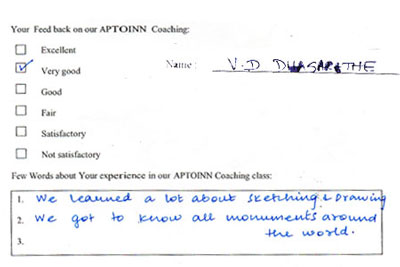 Your Feed back on our APTOINN Coaching:
Excellent
Very good
Name: V.D DHASARATHE
Good
Fair
Satisfactory
Not satisfactory
Few Words about Your experience in our APTOINN Coaching class:
1. We learned a lot about sketching & Drawing
2. We got to know all monuments around
3. the world.